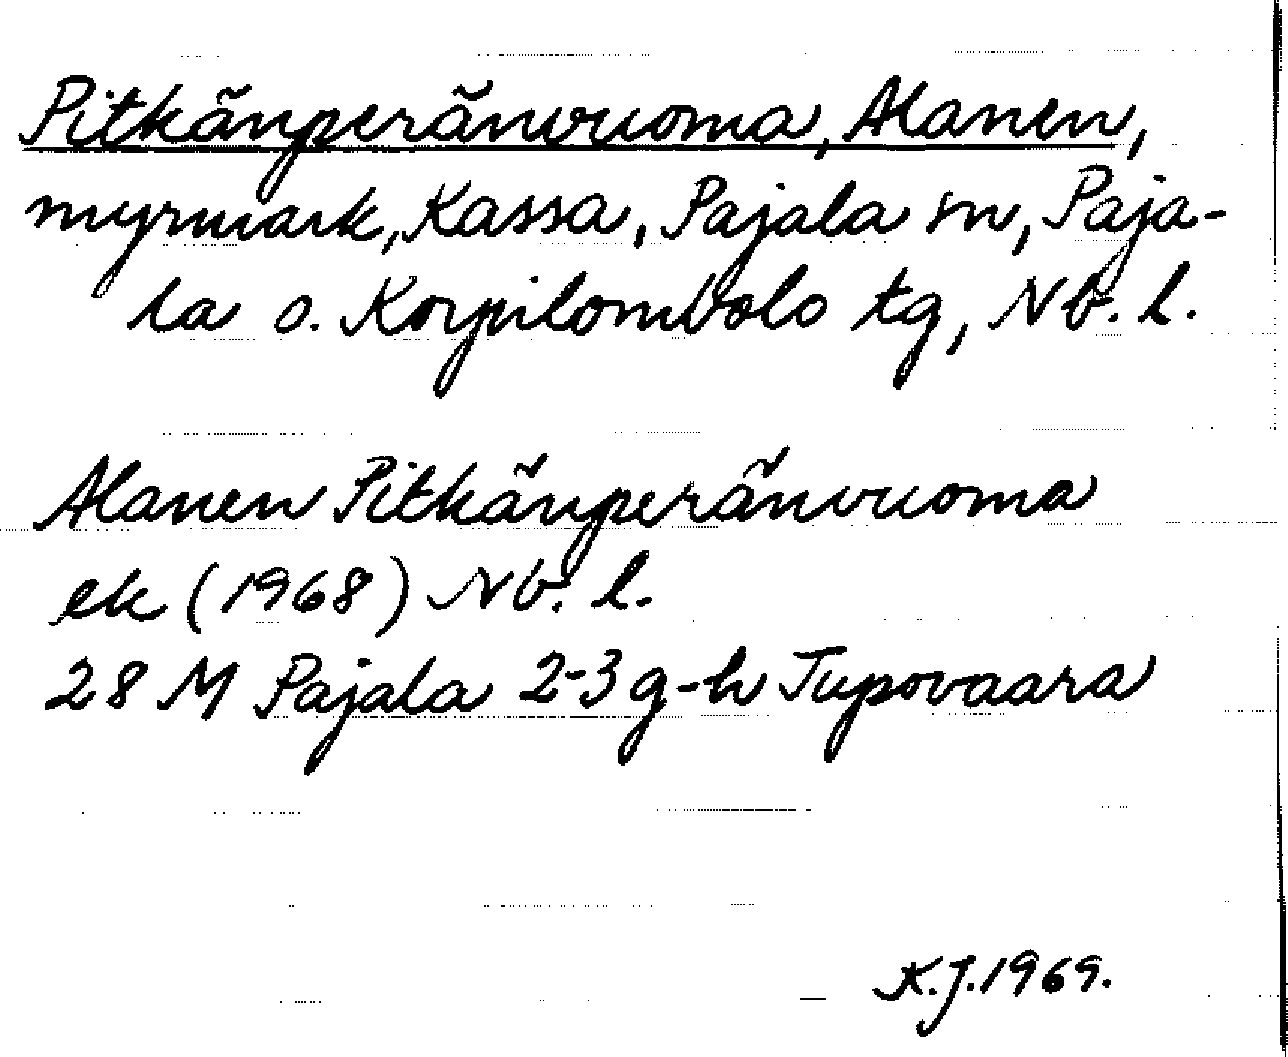 Pitkänperänvuoma, Alanen,
myrmark, Kassa, Pajala sn, Paja-
la o. Korpilombolo tg, Nb. l.
Alanen Pitkänperänvuoma
ek (1968) Nb. l.
28 M Pajala 2-3 g-h Tupovaara
K.J. 1969.